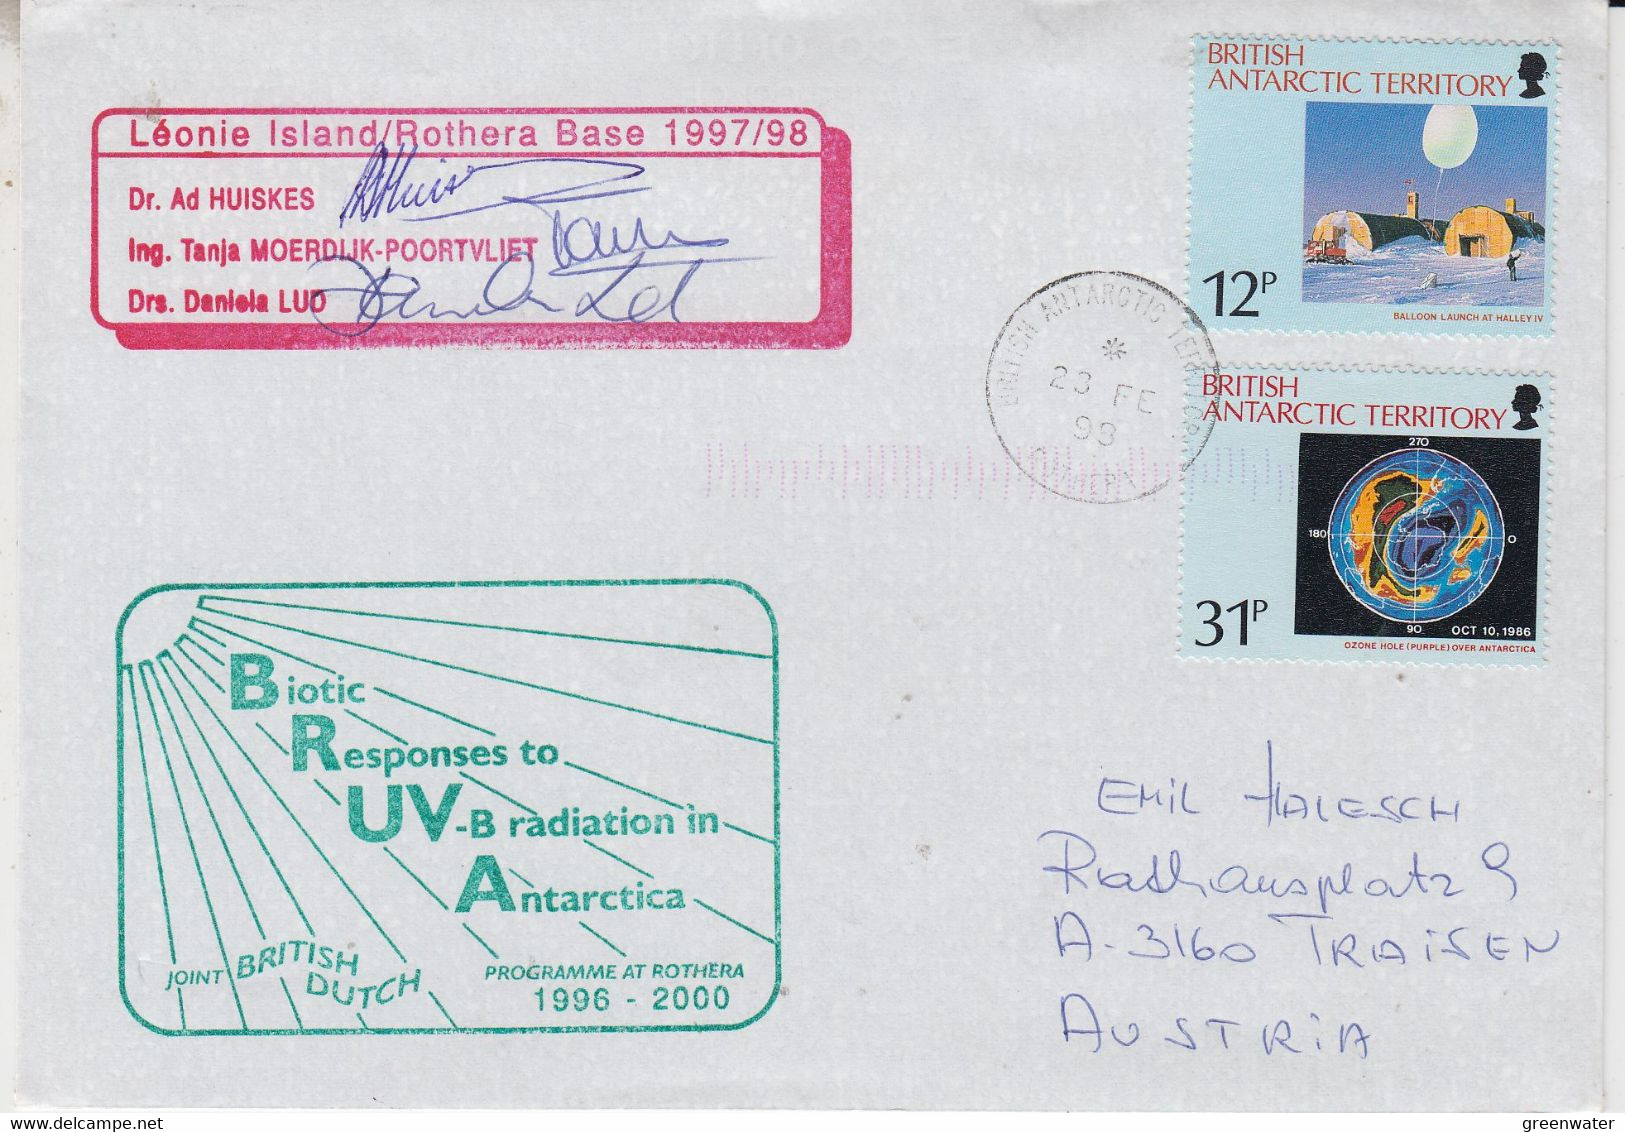 Léonie Island/Rothera Base 1997/98
Dr. Ad HUISKES
Ing. Tanja MOERDIJK-POORTVLIET
Drs. Daniela LUD
BRITISH
ANTARCTIC TERRITORY
12P
BALLOON LAUNCH AT HALLEY IV
BRITISH ANTARCTIC TERRITORY
23 FE
98
ROTHERA
BRITISH
ANTARCTIC TERRITORY
270
180
0
90
OCT 10, 1986
31P
OZONE HOLE (PURPLE) OVER ANTARCTICA
Biotic
Responses to
UV-B radiation in
Antarctica
JOINT BRITISH DUTCH PROGRAMME AT ROTHERA
1996 - 2000
EMiL HALESCH
Rathausplatz 9
A-3160 TRAiSEN
AUSTRiA
delcampe.net
greenwater